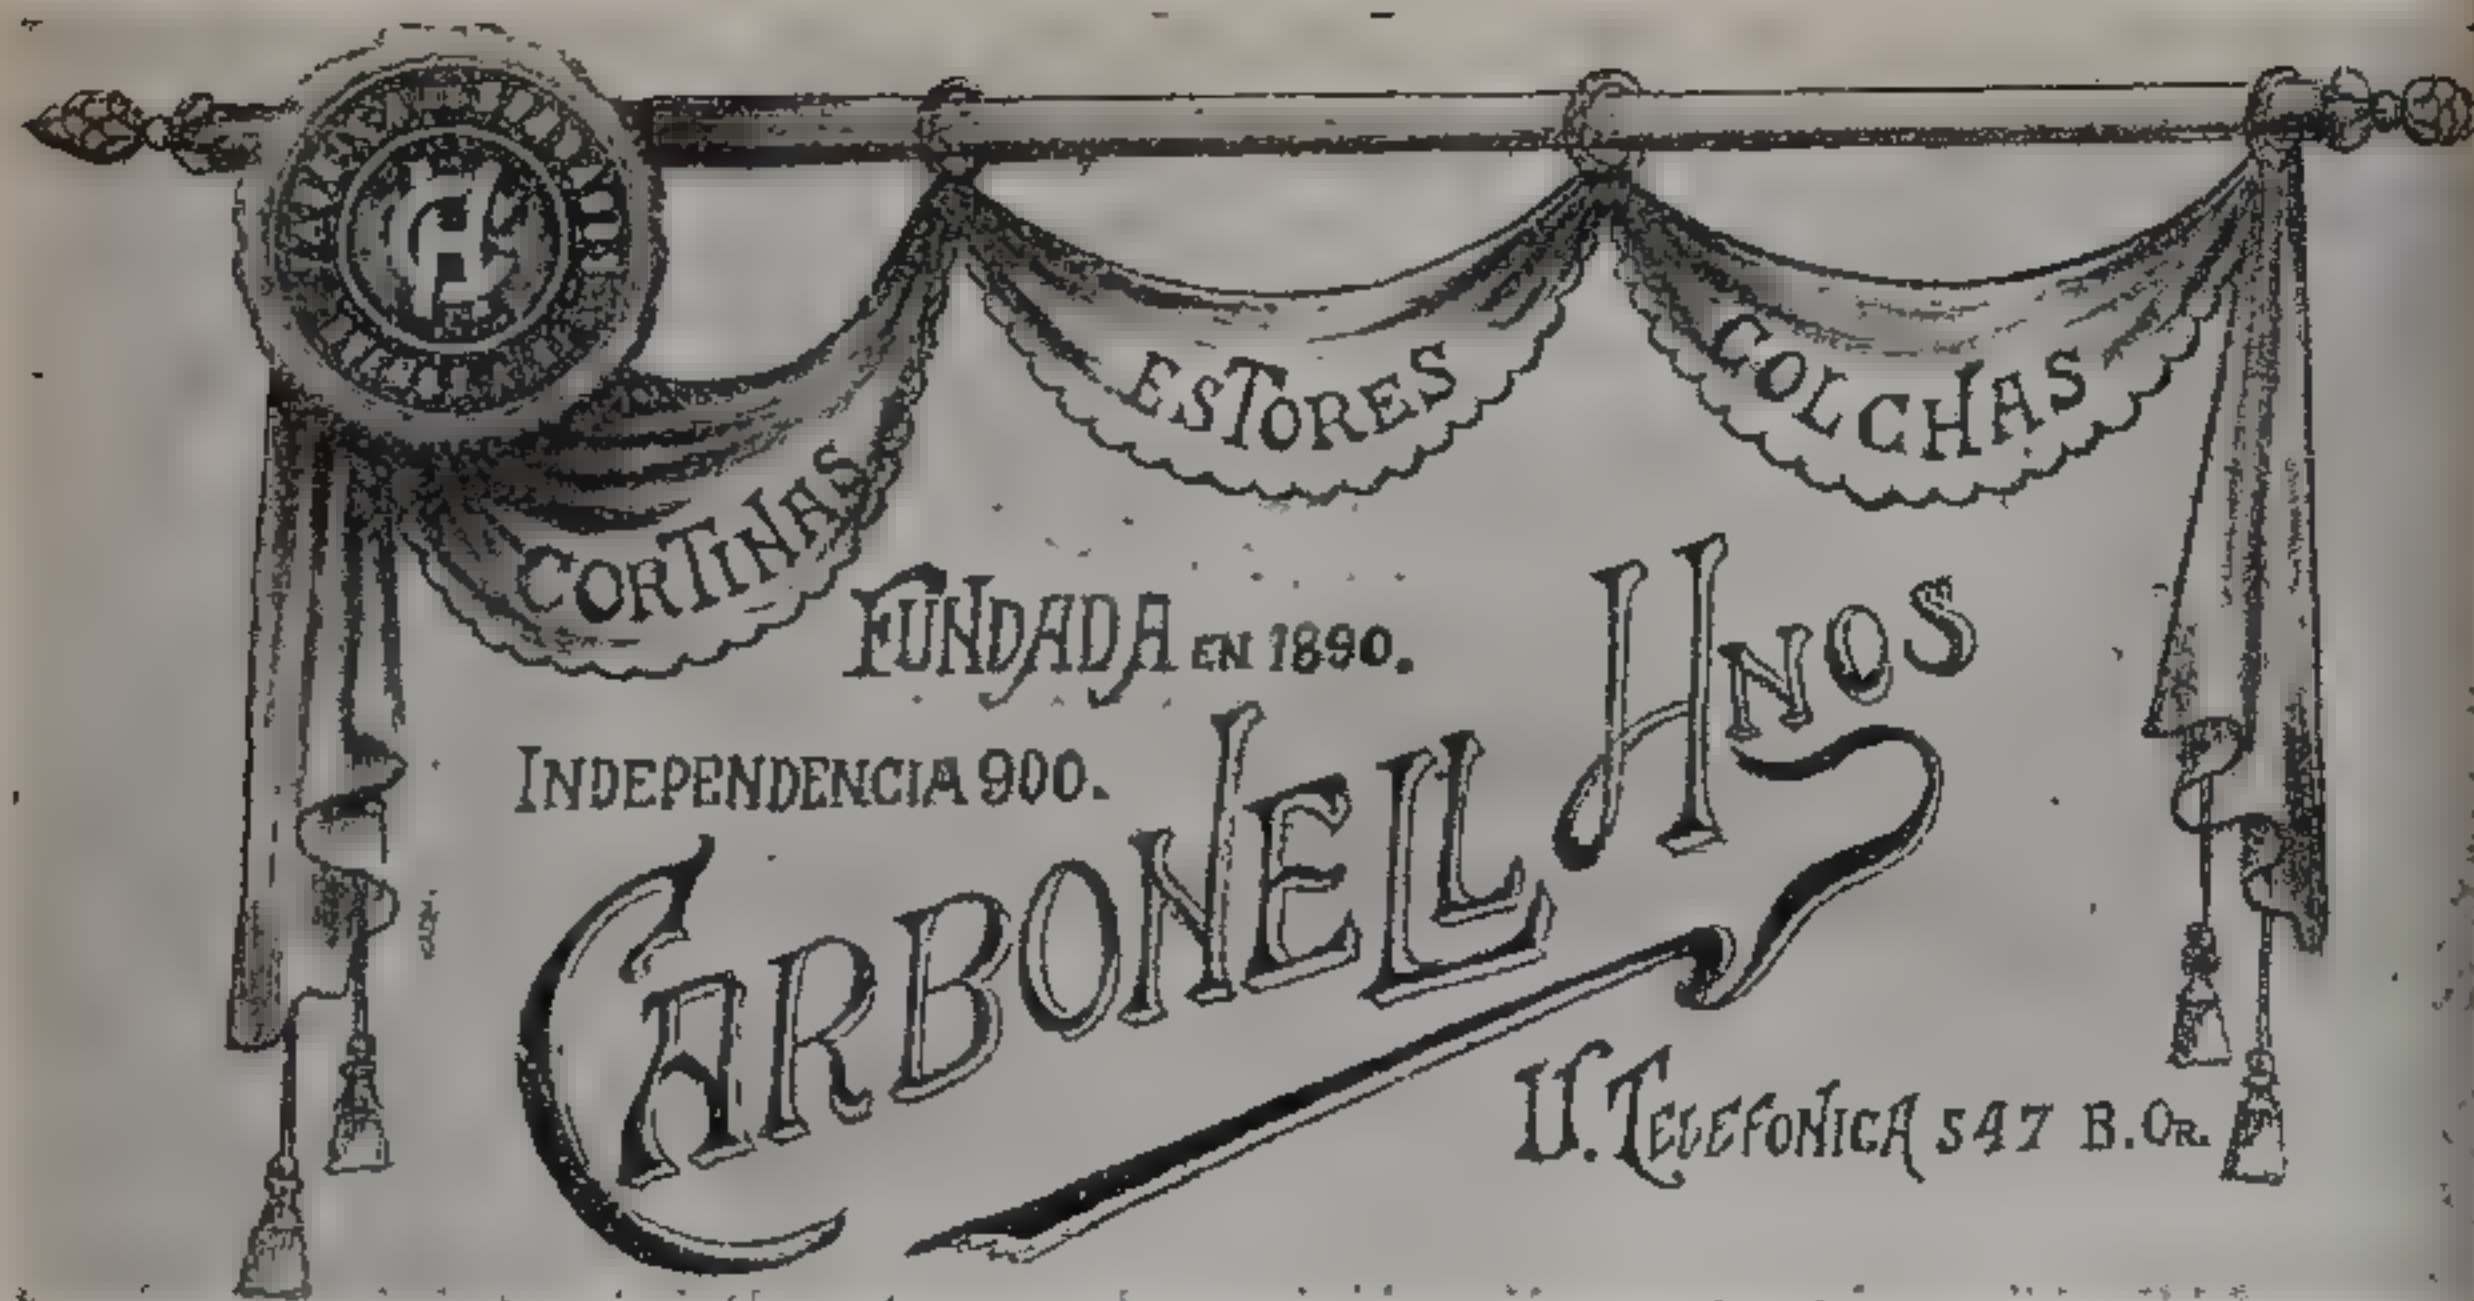 CORTINAS
ESTORES
COLCHAS
FUNDADA EN 1890.
INDEPENDENCIA 900.
CARBONELL HNOS
U. TELEFONICA 547 B. OR.